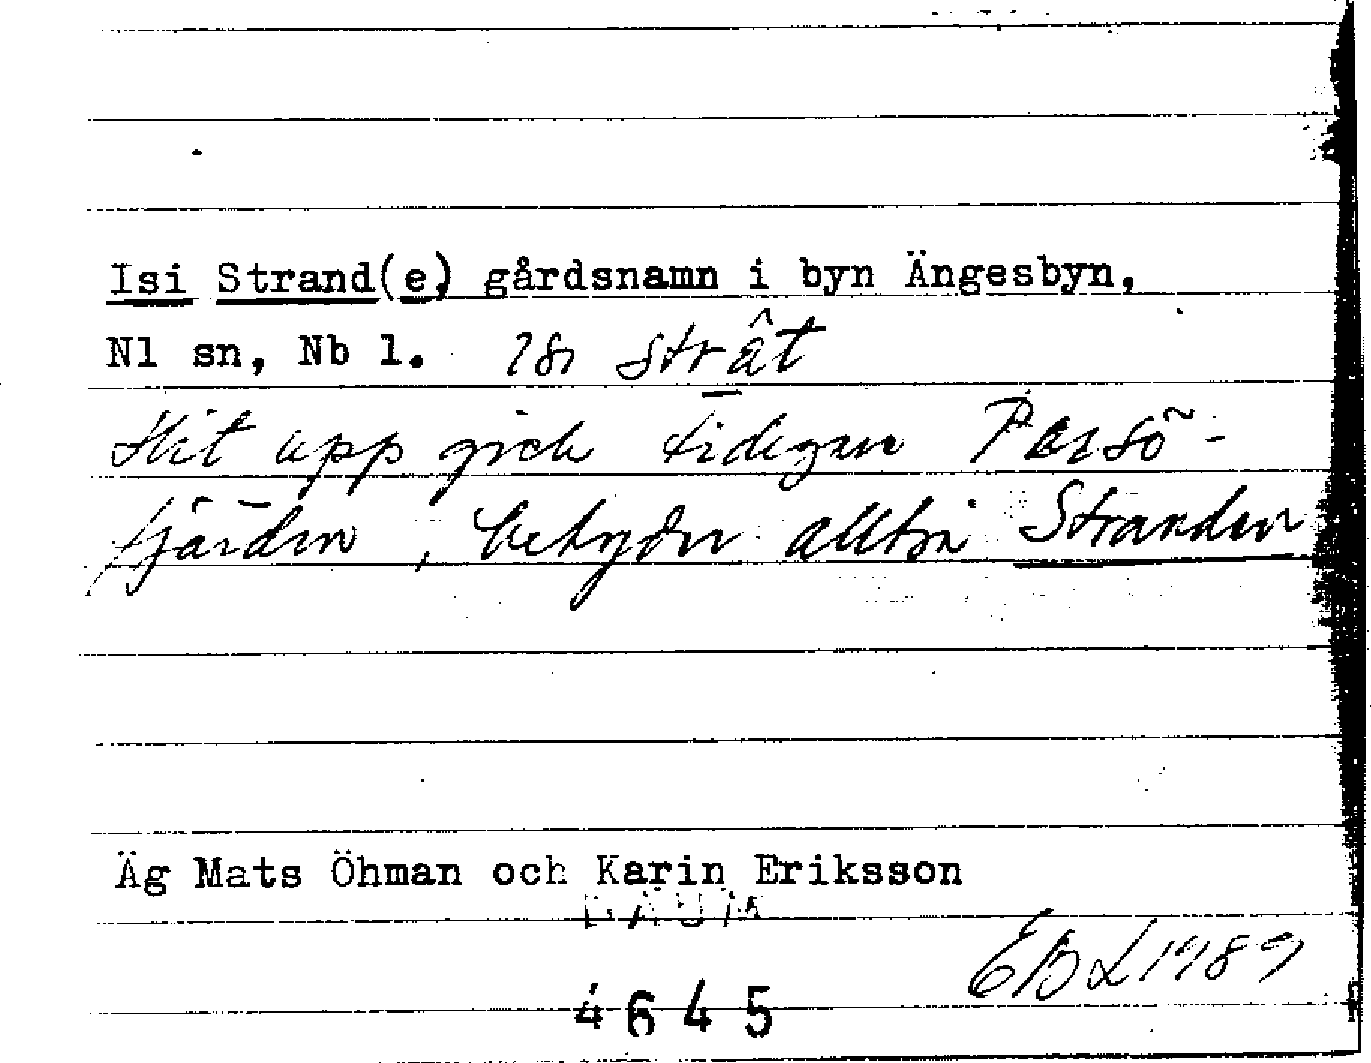 Isi Strand(e) gårdsnamn i byn Ängesbyn,
Nl sn, Nb l. isi strât
Hit upp gick tidigare Persö-
fjärden, betyder alltså Stranden
Äg Mats Öhman och Karin Eriksson
DAUM
EBL 1989
4645